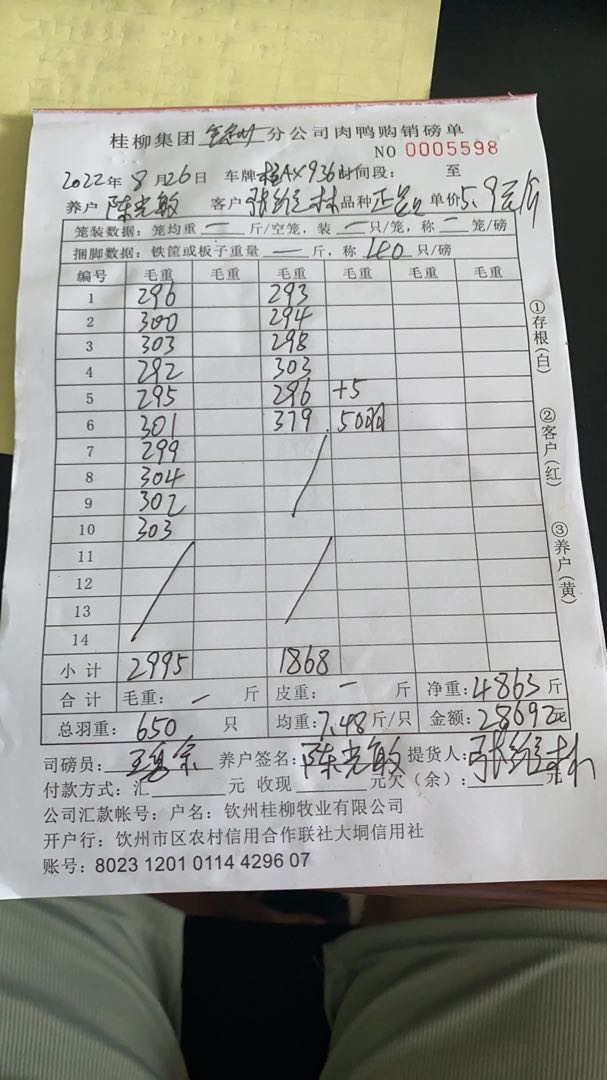 桂柳集团 钦州 分公司肉鸭购销磅单
NO 0005598
2022年 8 月 26 日 车牌 AX936 时间段: 至
养户 陈光敏 客户 张继林 品种 正品 单价 5.9元/斤
笼装数据: 笼均重 一 斤/空笼, 装 一 只/笼, 称 一 笼/磅
捆脚数据: 铁筐或板子重量 一 斤, 称 40 只/磅
编号 毛重 毛重 毛重 毛重 毛重 毛重
1 296 293
2 300 294
3 303 298
4 292 303
5 295 296 +5
6 301 379 50羽
7 299
8 304
9 302
10 303
11
12
13
14
小计 2995 1868
合计 毛重: 一 斤 皮重: 一 斤 净重: 4863 斤
总羽重: 650 只 均重: 7.48 斤/只 金额: 28692元
司磅员: 养户签名: 陈光敏 提货人: 张继林
付款方式: 汇 元 收现 元欠(余): 元
公司汇款帐号: 户名: 钦州桂柳牧业有限公司
开户行: 钦州市区农村信用合作联社大垌信用社
账号: 8023 1201 0114 4296 07
①存根(白)
②客户(红)
③养户(黄)